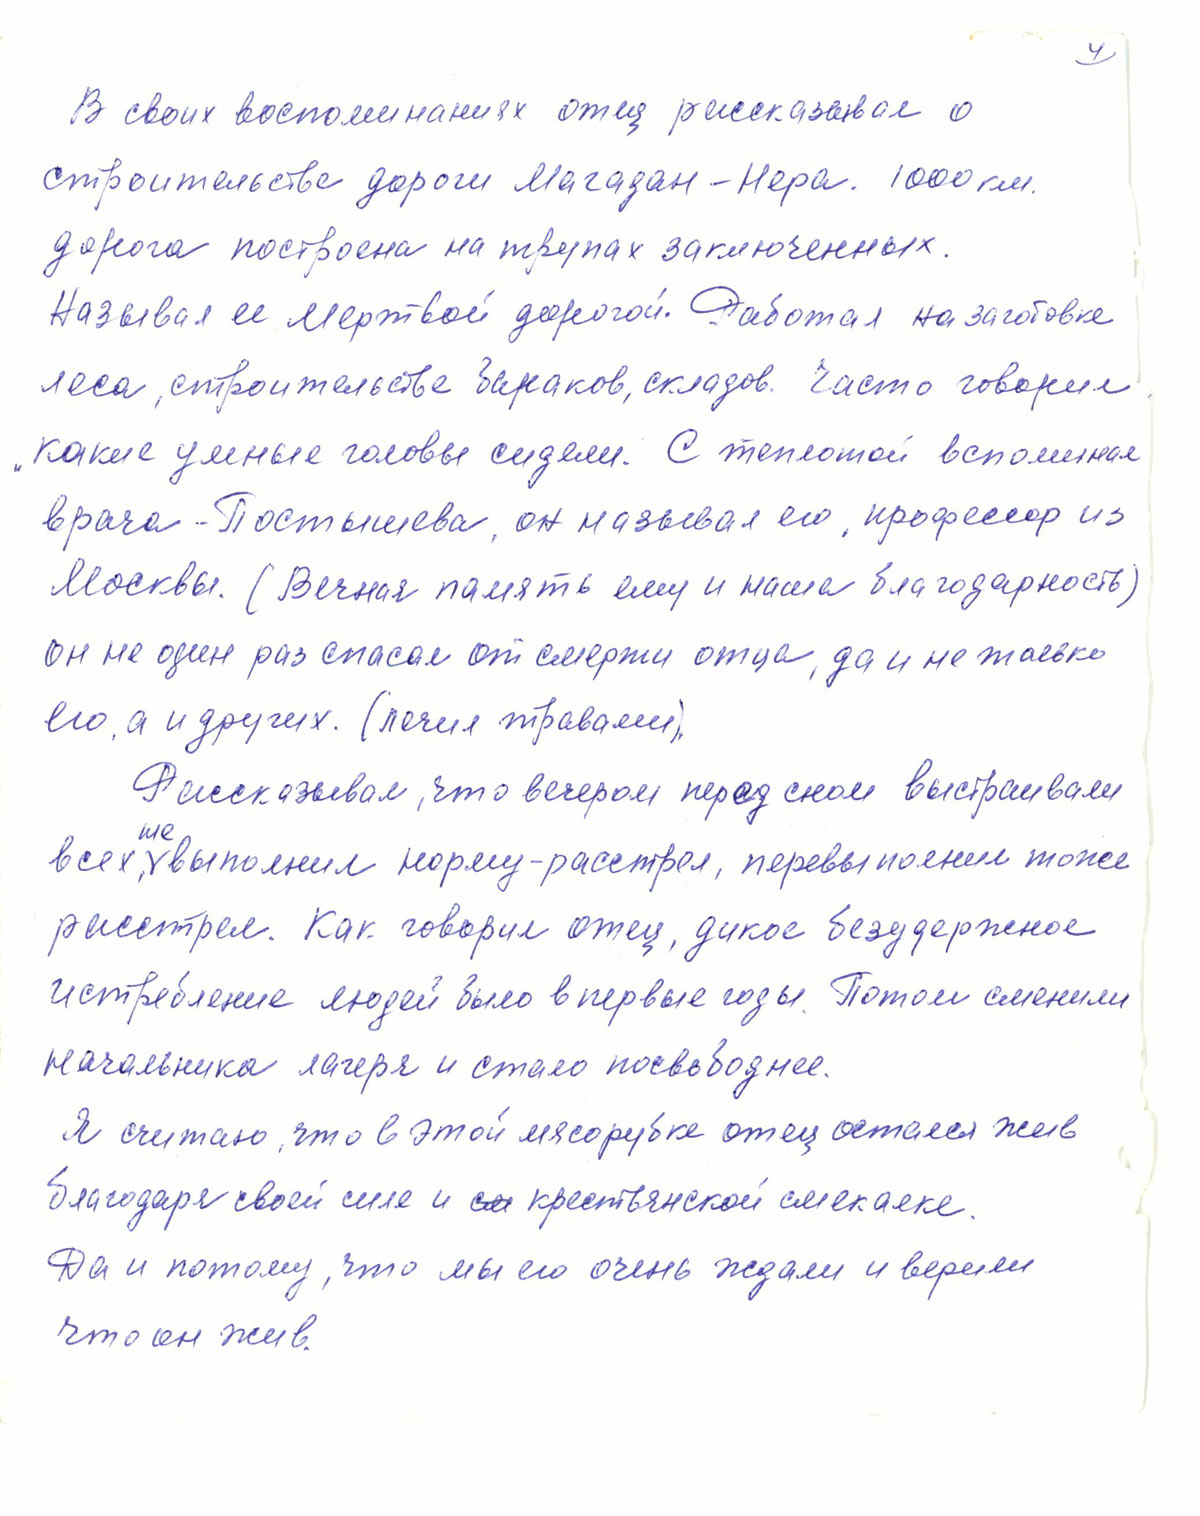 4
В своих воспоминаниях отец рассказывал о
строительстве дороги Магадан – Нера. 1000 км.
дорога построена на трупах заключенных.
Называл ее Мертвой дорогой. Работал на заготовке
леса, строительстве бараков, складов. Часто говорил
„какие умные головы сидели. С теплотой вспоминал
врача – Постышева, он называл его, профессор из
Москвы. (Вечная память ему и наша благодарность)
он не один раз спасал от смерти отца, да и не только
его, а и других. (лечил травами).
Рассказывал, что вечером перед сном выстраивали
всех, не выполнил норму – расстрел, перевыполнил тоже
расстрел. Как говорил отец, дикое безудержное
истребление людей было в первые годы. Потом сменили
начальника лагеря и стало посвободнее.
Я считаю, что в этой мясорубке отец остался жив
благодаря своей силе и крестьянской смекалке.
Да и потому, что мы его очень ждали и верили
что он жив.